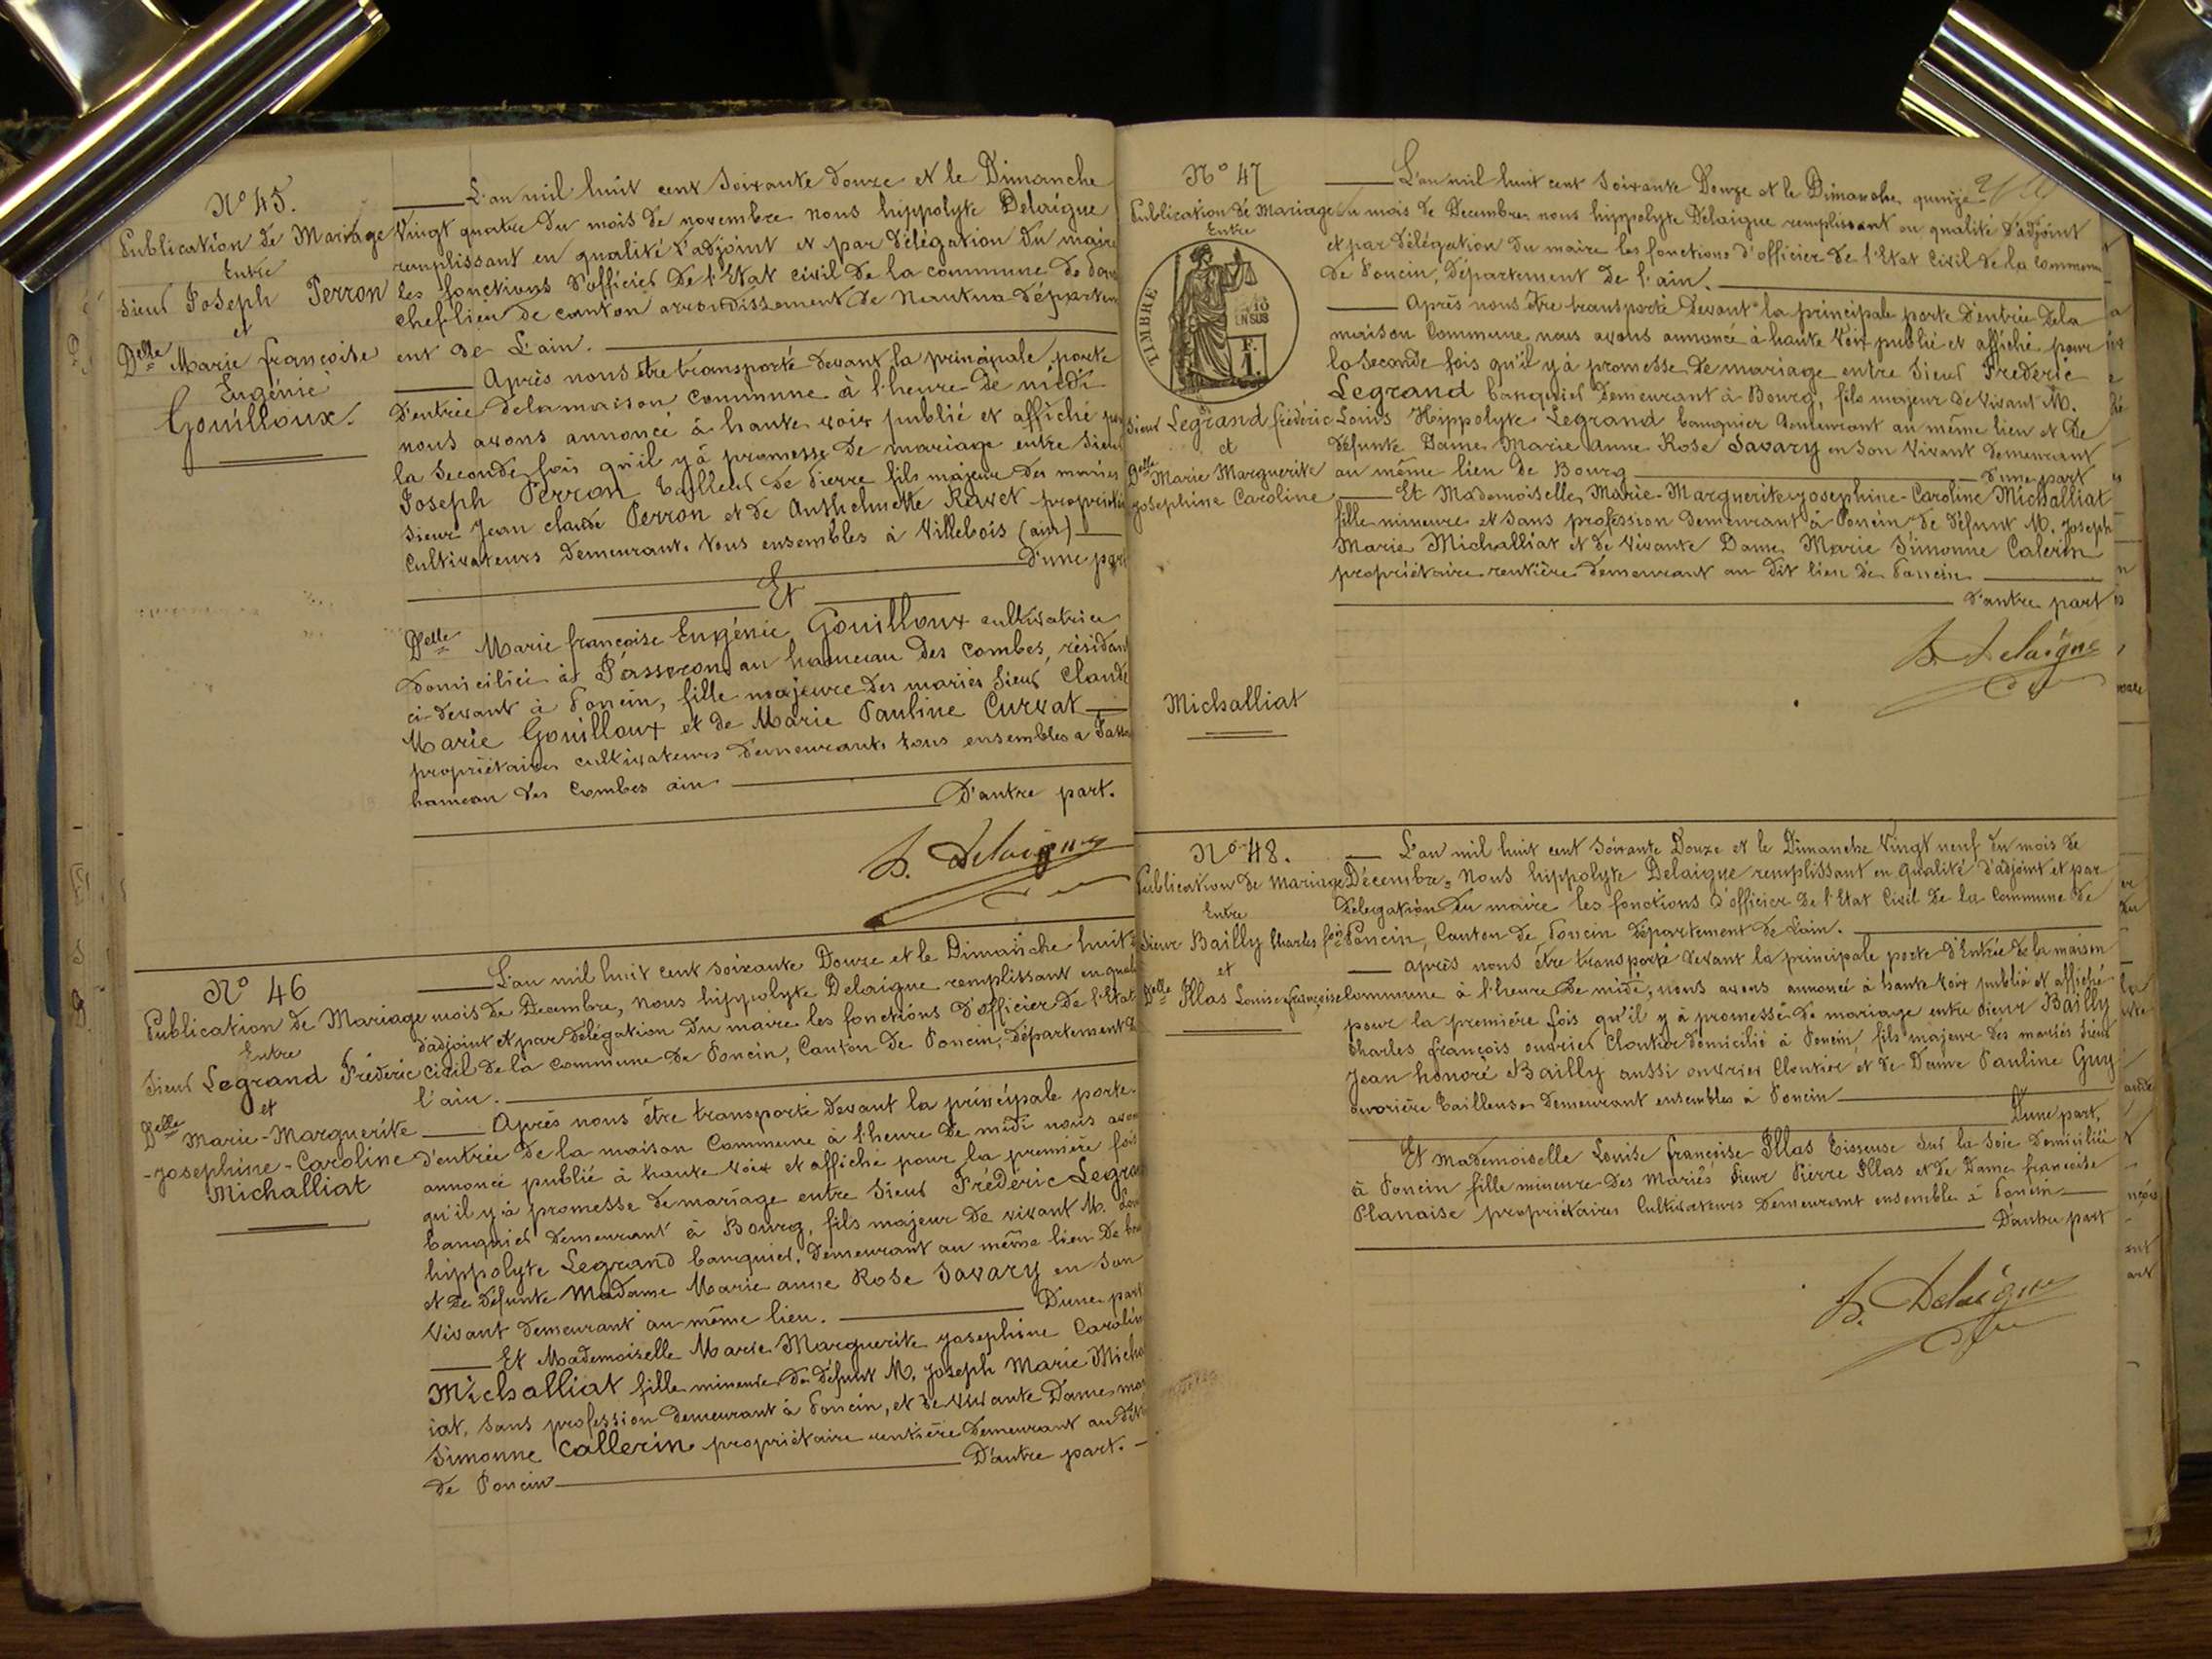 N° 45.
Publication de Mariage
Entre
Sieur Joseph Perron
et
Delle Marie françoise
Eugénie
Gouilloux.
L'an mil huit cent soixante douze et le Dimanche
Vingt quatre du mois de novembre nous hippolyte Delaigue
remplissant en qualité d'adjoint et par délégation du maire
les fonctions d'officier de l'Etat civil de la commune de
chef lieu de canton arrondissement de Nantua départem
ent de L'ain.
Après nous être transporté devant la principale porte
d'entrée de la maison commune à l'heure de midi
nous avons annoncé à haute voix publié et affiché
la seconde fois qu'il y à promesse de mariage entre sieur
Joseph Perron tailleur de Pierre fils majeur des mariés
sieur Jean claude Perron et de Anthelmette Ravet
cultivateurs demeurant tous ensembles à Villebois (ain)
D'une part
Et
Delle Marie françoise Eugénie Gouilloux cultivatrice
domiciliée à au hameau des combes, résidant
ci-devant à Poncin, fille majeure des mariés Sieur Claude
Marie Gouilloux et de Marie Pauline Curvat
propriétaires cultivateurs demeurant tous ensembles a
hameau des Combes ain
D'autre part.
h. Delaigue
N° 46
Publication de Mariage
Entre
Sieur Legrand Fréderic
et
Delle Marie-Marguerite
-Josephine-Caroline
Michalliat
L'an mil huit cent soixante Douze et le Dimanche huit
mois de Decembre, nous hippolyte Delaigue remplissant en
d'adjoint et par délégation du maire les fonctions d'officier de l'Etat
civil de la commune de Poncin, Canton de Poncin, département de
l'ain.
Après nous être transporté devant la principale porte
d'entrée de la maison Commune à l'heure de midi nous avons
annoncé publié à haute voix et affiché pour la première fois
qu'il y à promesse de mariage entre Sieur Fréderic Legra
banquier demeurant à Bourg, fils majeur de vivant M.
hippolyte Legrand banquier, demeurant au même lieu de
et de défunte Madame Marie anne Rose Savary en son
Vivant demeurant au même lieu. D'une part
Et Mademoiselle Marie Marguerite Josephine Carolin
Michalliat fille mineure de défunt M. Joseph Marie Micha
iat, sans profession demeurant à Poncin, et de vivante Dame
Simonne Callerin propriétaire rentière demeurant au dit
de Poncin D'autre part.
N° 47
Publication de Mariage
Entre
TIMBRE
1 F.
Sieur Legrand fréderic
et
Delle Marie Marguerite
Josephine Caroline
Michalliat
L'an mil huit cent soixante Douze et le Dimanche quinze
du mois de Decembre nous hippolyte Delaigue remplissant en qualité d'adjoint
et par délégation du maire les fonctions d'officier de l'Etat Civil de la commune
de Poncin, Département de l'ain.
Après nous être transporté devant la principale porte d'entrée de la
maison Commune, nous avons annoncé à haute Voix publié et affiché pour
la seconde fois qu'il y à promesse de mariage entre Sieur Frederic
Legrand banquier demeurant à Bourg, fils majeur de Vivant M.
Louis Hippolyte Legrand banquier demeurant au même lieu et de
défunte Dame Marie Anne Rose Savary en son Vivant demeurant
au même lieu de Bourg d'une part
Et Mademoiselle Marie-Marguerite-Josephine-Caroline Michalliat
fille mineure et sans profession demeurant à Poncin de défunt M. Joseph
Marie Michalliat et de Vivante Dame Marie Simonne Calerin
propriétaire rentière demeurant au dit lieu de Poncin
d'autre part
h. Delaigue
N° 48.
Publication de Mariage
Entre
Sieur Bailly Charles fois
et
Delle Illas Louise françoise
L'an mil huit cent soixante Douze et le Dimanche Vingt neuf du mois de
Décembre, Nous hippolyte Delaigue remplissant en qualité d'adjoint et par
délégation du maire les fonctions d'officier de l'Etat Civil de la Commune de
Poncin, Canton de Poncin département de L'ain.
après nous être transporté devant la principale porte d'Entrée de la maison
Commune à l'heure de midi, nous avons annoncé à haute voix publié et affiché
pour la première fois qu'il y à promesse de mariage entre Sieur Bailly
Charles françois ouvrier Cloutier domicilié à Poncin, fils majeur des mariés Sieur
Jean honoré Bailly aussi ouvrier Cloutier et de Dame Pauline Guy
ouvrière tailleuse demeurant ensembles à Poncin
D'une part,
Et Mademoiselle Louise françoise Illas Tisseuse sur la soie Domiciliée
à Poncin fille mineure des Mariés Sieur Pierre Illas et de Dame françoise
Planaise propriétaires Cultivateurs demeurant ensemble à Poncin
D'autre part
h. Delaigue